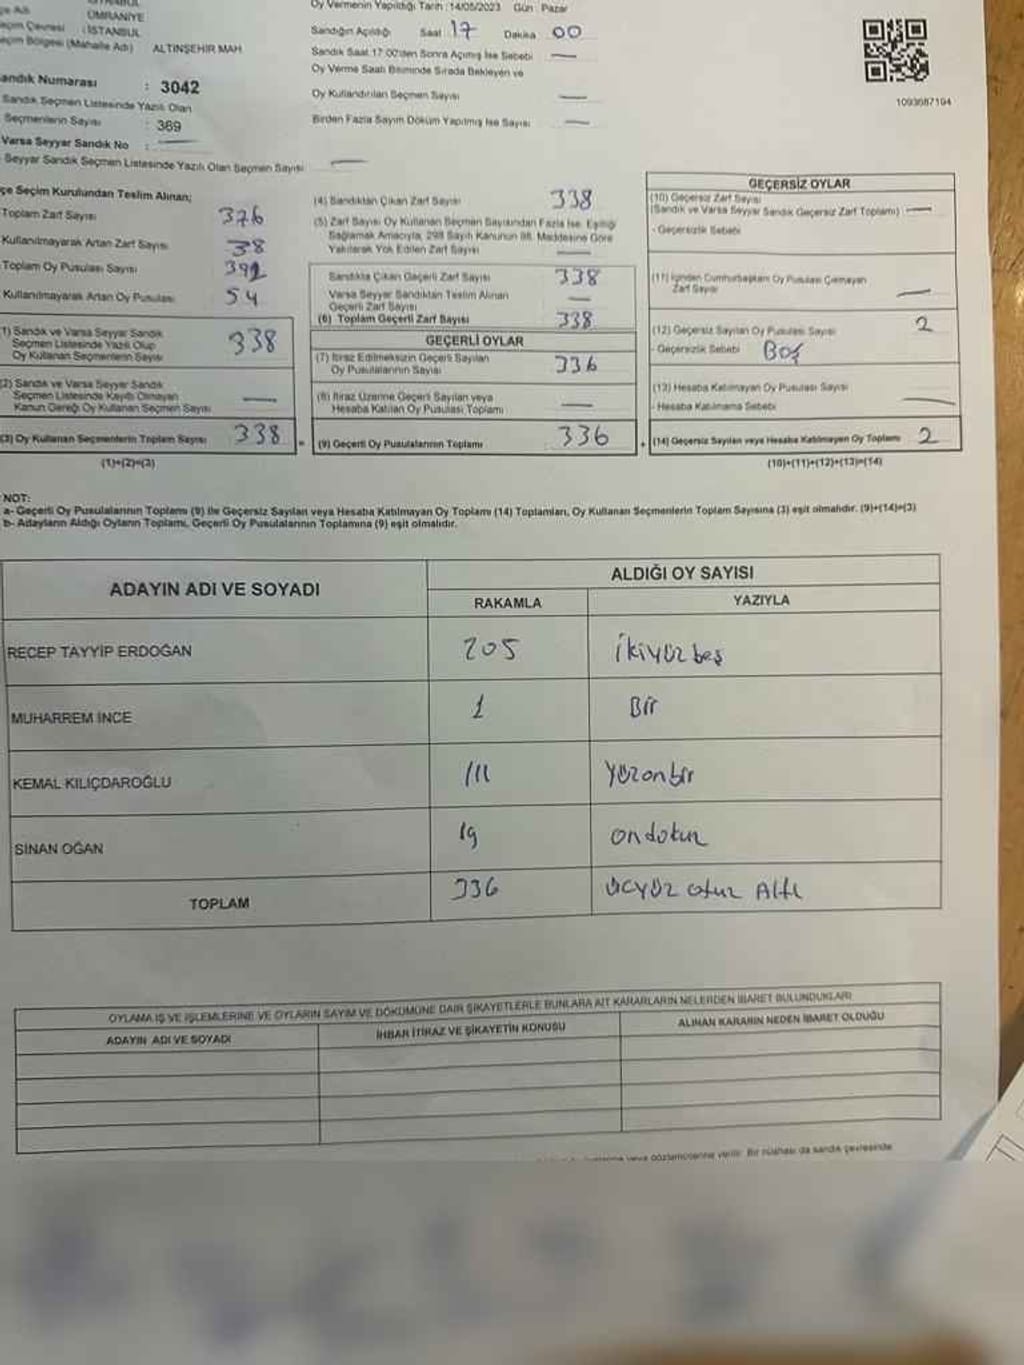 ÜMRANİYE
: İSTANBUL
ALTINŞEHİR MAH
Sandık Numarası : 3042
Sandık Seçmen Listesinde Yazılı Olan
Seçmenlerin Sayısı : 369
Varsa Seyyar Sandık No : —
Seyyar Sandık Seçmen Listesinde Yazılı Olan Seçmen Sayısı —
Oy Vermenin Yapıldığı Tarih :14/05/2023 Gün : Pazar
Sandığın Açıldığı Saat 17 Dakika 00
Sandık Saat 17:00'den Sonra Açılmış İse Sebebi —
Oy Verme Saati Bitiminde Sırada Bekleyen ve
Oy Kullandırılan Seçmen Sayısı —
Birden Fazla Sayım Döküm Yapılmış İse Sayısı —
1093687194
İlçe Seçim Kurulundan Teslim Alınan;
Toplam Zarf Sayısı 376
Kullanılmayarak Artan Zarf Sayısı 38
Toplam Oy Pusulası Sayısı 392
Kullanılmayarak Artan Oy Pusulası 54
(1) Sandık ve Varsa Seyyar Sandık
Seçmen Listesinde Yazılı Olup
Oy Kullanan Seçmenlerin Sayısı 338
(2) Sandık ve Varsa Seyyar Sandık
Seçmen Listesinde Kayıtlı Olmayan
Kanun Gereği Oy Kullanan Seçmen Sayısı —
(3) Oy Kullanan Seçmenlerin Toplam Sayısı 338 =
(1)+(2)=(3)
(4) Sandıktan Çıkan Zarf Sayısı 338
(5) Zarf Sayısı Oy Kullanan Seçmen Sayısından Fazla İse, Eşitliği
Sağlamak Amacıyla, 298 Sayılı Kanunun 98. Maddesine Göre
Yakılarak Yok Edilen Zarf Sayısı —
Sandıkta Çıkan Geçerli Zarf Sayısı 338
Varsa Seyyar Sandıktan Teslim Alınan
Geçerli Zarf Sayısı —
(6) Toplam Geçerli Zarf Sayısı 338
GEÇERLİ OYLAR
(7) İtiraz Edilmeksizin Geçerli Sayılan
Oy Pusulalarının Sayısı 336
(8) İtiraz Üzerine Geçerli Sayılan veya
Hesaba Katılan Oy Pusulası Toplamı —
(9) Geçerli Oy Pusulalarının Toplamı 336 +
GEÇERSİZ OYLAR
(10) Geçersiz Zarf Sayısı
(Sandık ve Varsa Seyyar Sandık Geçersiz Zarf Toplamı) —
- Geçersizlik Sebebi
(11) İçinden Cumhurbaşkanı Oy Pusulası Çıkmayan
Zarf Sayısı —
(12) Geçersiz Sayılan Oy Pusulası Sayısı 2
- Geçersizlik Sebebi Boş
(13) Hesaba Katılmayan Oy Pusulası Sayısı
- Hesaba Katılmama Sebebi —
(14) Geçersiz Sayılan veya Hesaba Katılmayan Oy Toplamı 2
(10)+(11)+(12)+(13)=(14)
NOT:
a- Geçerli Oy Pusulalarının Toplamı (9) ile Geçersiz Sayılan veya Hesaba Katılmayan Oy Toplamı (14) Toplamları, Oy Kullanan Seçmenlerin Toplam Sayısına (3) eşit olmalıdır. (9)+(14)=(3)
b- Adayların Aldığı Oyların Toplamı, Geçerli Oy Pusulalarının Toplamına (9) eşit olmalıdır.
ADAYIN ADI VE SOYADI
ALDIĞI OY SAYISI
RAKAMLA YAZIYLA
RECEP TAYYİP ERDOĞAN 205 İkiyüz beş
MUHARREM İNCE 1 Bir
KEMAL KILIÇDAROĞLU 111 Yüzonbir
SİNAN OĞAN 19 ondokuz
TOPLAM 336 üçyüz otuz Altı
OYLAMA İŞ VE İŞLEMLERİNE VE OYLARIN SAYIM VE DÖKÜMÜNE DAİR ŞİKAYETLERLE BUNLARA AİT KARARLARIN NELERDEN İBARET BULUNDUKLARI
ADAYIN ADI VE SOYADI İHBAR İTİRAZ VE ŞİKAYETİN KONUSU ALINAN KARARIN NEDEN İBARET OLDUĞU
veya gözlemcilerine verilir. Bir nüshası da sandık çevresinde